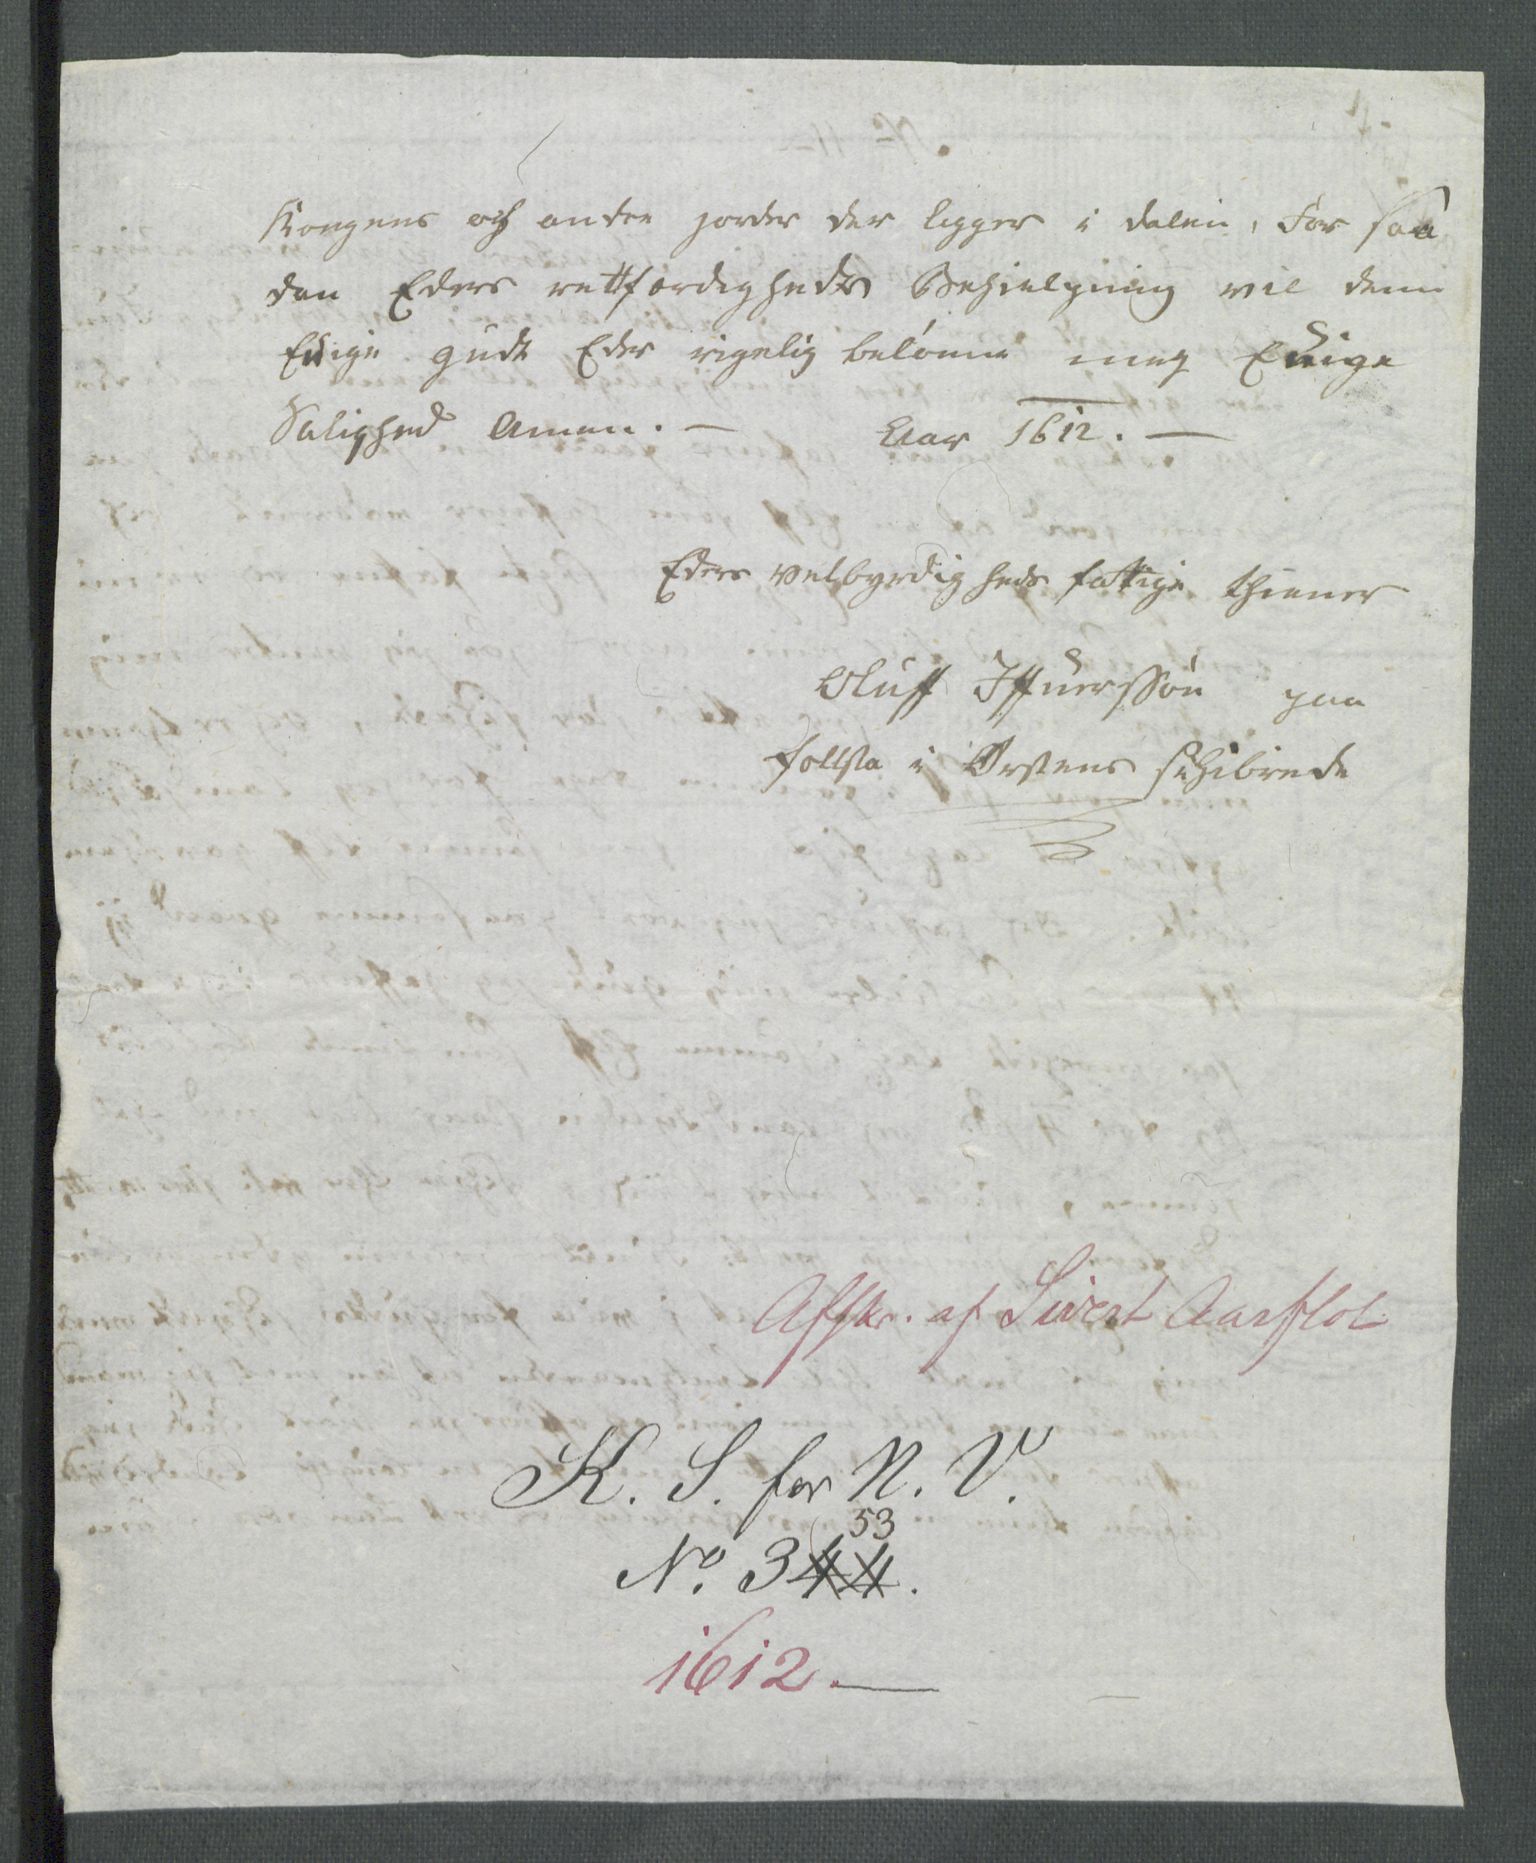 Kongens och andre jorder der legger i dalen, For saa
dan Eders rettferdigheds Behielpning vil denn
Euige gudt Eder rigelig belönne meg Euige
Salighed Amen. — Aar 1612. —
Eders velbyrdigheds fattige thiener
Oluff Iffuerssön paa
follsta i Ørstens schibrede
Afskr. af Sivert Aarflot
K. S. for N. V.
53
No. 344.
1612. —